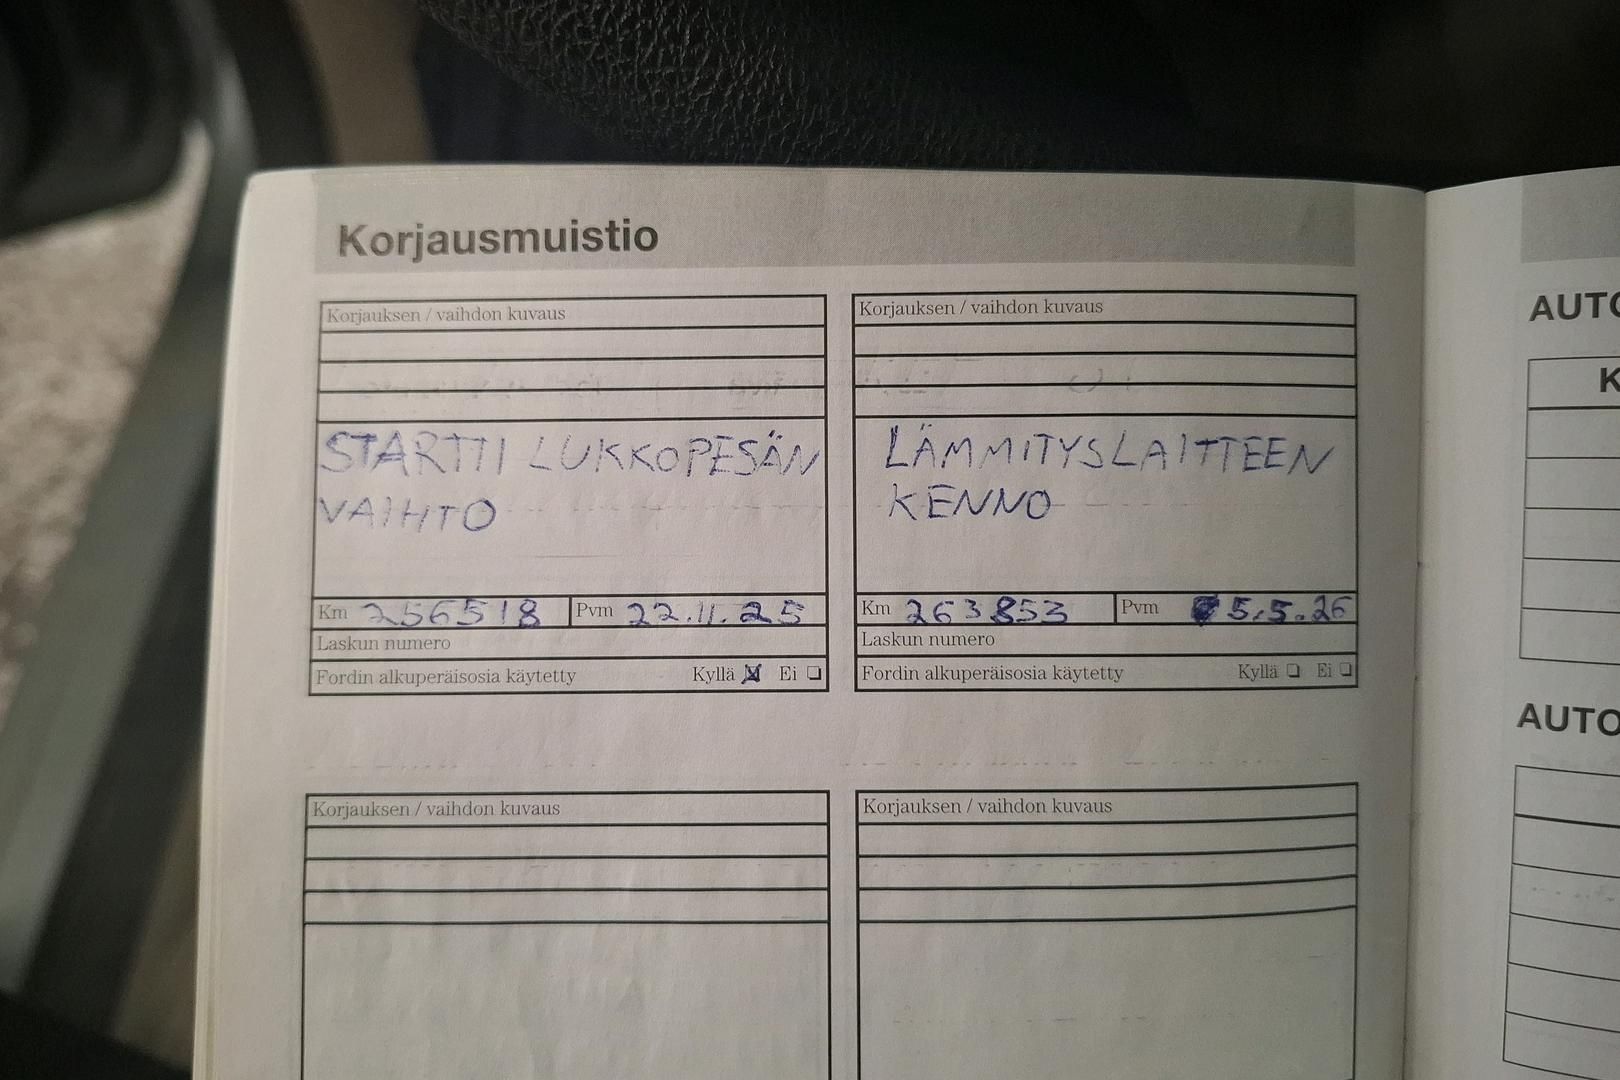 Korjausmuistio
Korjauksen / vaihdon kuvaus
STARTTI LUKKOPESÄN
VAIHTO
Km 256518 Pvm 22.11.25
Laskun numero
Fordin alkuperäisosia käytetty Kyllä ☒ Ei ☐
Korjauksen / vaihdon kuvaus
LÄMMITYSLAITTEEN
KENNO
Km 263853 Pvm 5.5.26
Laskun numero
Fordin alkuperäisosia käytetty Kyllä ☐ Ei ☐
Korjauksen / vaihdon kuvaus
Korjauksen / vaihdon kuvaus
AUTO
K
AUTO